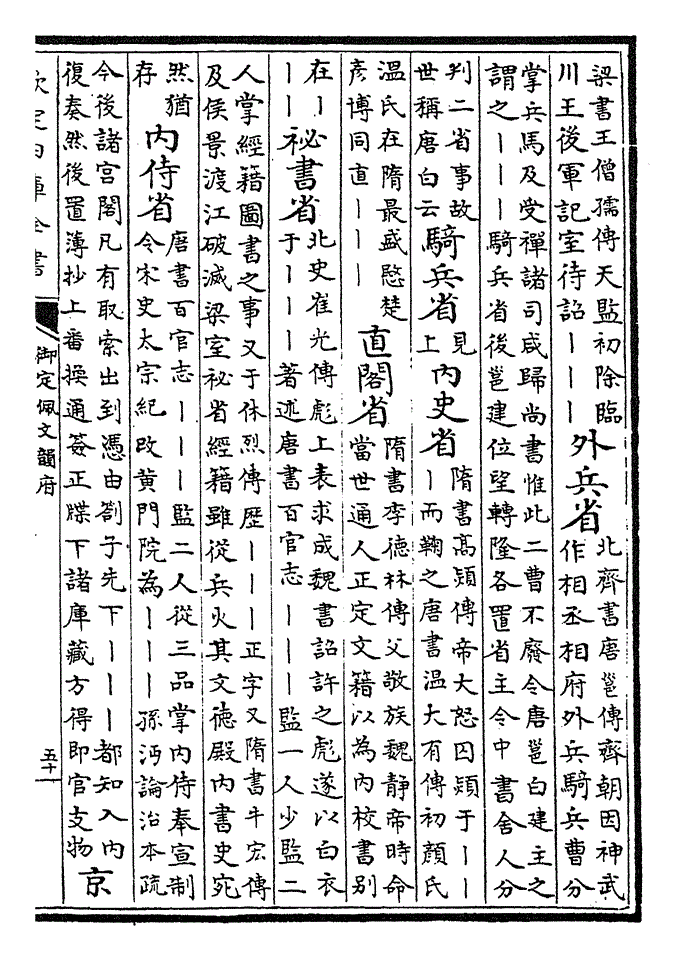 梁書王僧孺傳天監初除臨
川王後軍記室待詔丨丨丨
外兵省
北齊書唐邕傳齊朝因神武
作相丞相府外兵騎兵曹分
掌兵馬及受禪諸司咸歸尚書惟此二曹不廢令唐邕白建主之
謂之丨丨丨騎兵省後邕建位望轉隆各置省主令中書舍人分
判二省事故
世稱唐白云
騎兵省
見
上
内史省
隋書高熲傳帝大怒囚熲于丨丨
丨而鞠之唐書温大有傳初顔氏
温氏在隋最盛愍楚
彦博同直丨丨丨
直閣省
隋書李德林傳父敬族魏静帝時命
當世通人正定文籍以為内校書别
在丨
丨丨
祕書省
北史崔光傳彪上表求成魏書詔許之彪遂以白衣
于丨丨丨著述唐書百官志丨丨丨監一人少監二
人掌經籍圖書之事又于休烈傳歴丨丨丨正字又隋書牛宏傳
及侯景渡江破滅梁室祕省經籍雖從兵火其文徳殿内書史宛
然猶
存
内侍省
唐書百官志丨丨丨監二人從三品掌内侍奉宣制
令宋史太宗紀改黄門院為丨丨丨孫沔論治本疏
今後諸宫閣凡有取索出到憑由劄子先下丨丨丨都知入内
復奏然後置薄抄上番换通簽正牒下諸庫藏方得即官支物
京
欽定四庫全書
御定佩文韻府
五十一